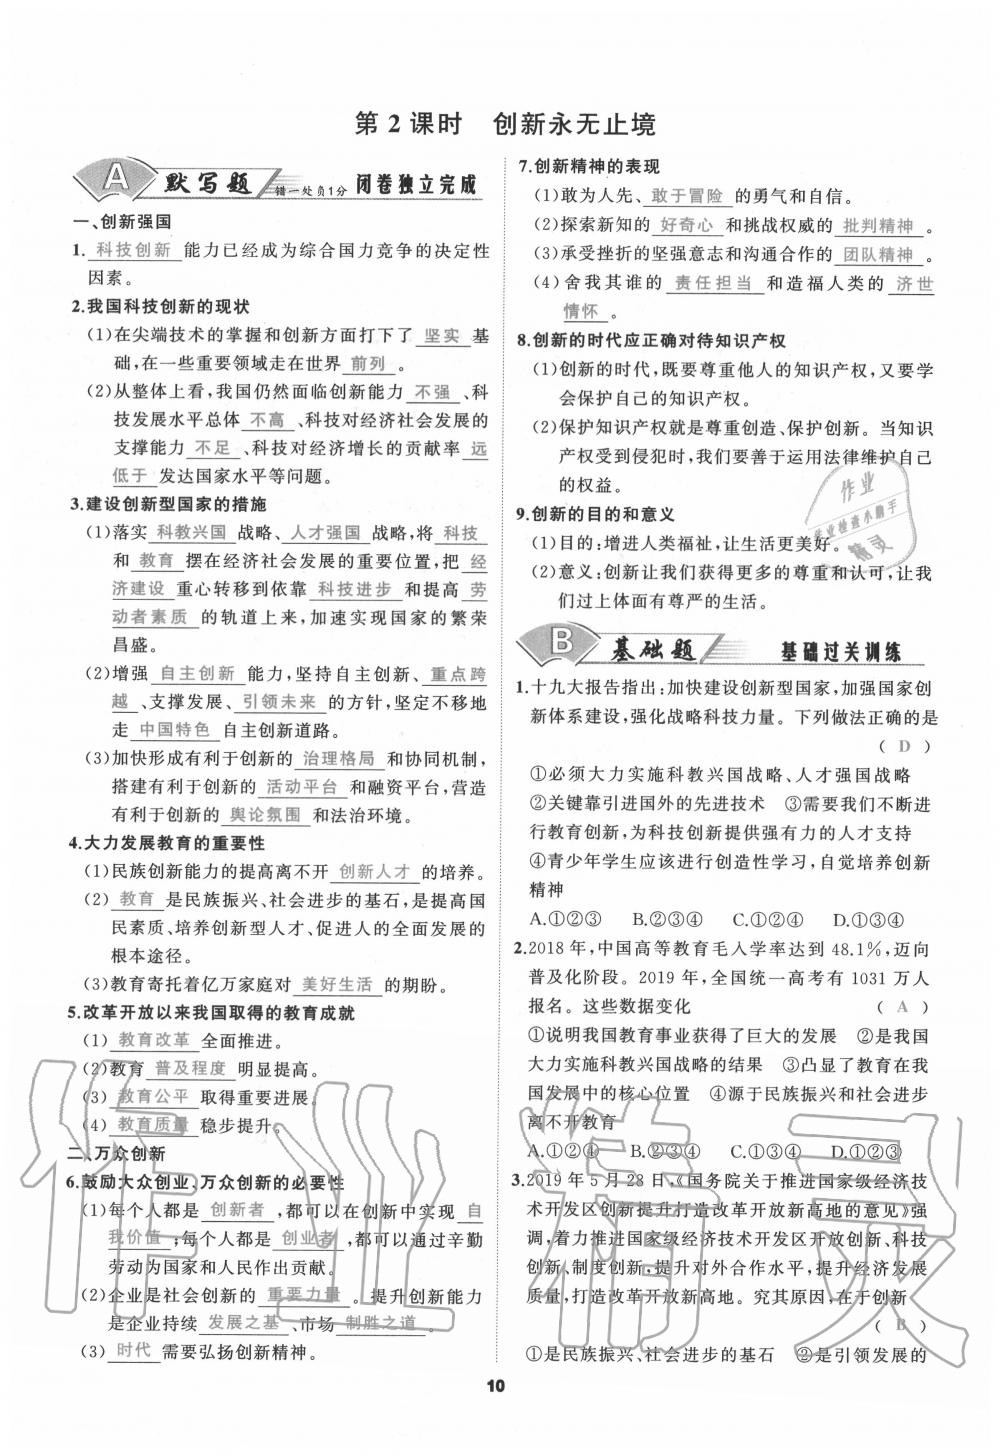 第2课时 创新永无止境
A 默写题 错一处负1分 闭卷独立完成
一、创新强国
1. 科技创新 能力已经成为综合国力竞争的决定性
因素。
2.我国科技创新的现状
(1)在尖端技术的掌握和创新方面打下了 坚实 基
础,在一些重要领域走在世界 前列 。
(2)从整体上看,我国仍然面临创新能力 不强 、科
技发展水平总体 不高 、科技对经济社会发展的
支撑能力 不足 、科技对经济增长的贡献率 远
低于 发达国家水平等问题。
3.建设创新型国家的措施
(1)落实 科教兴国 战略、 人才强国 战略,将 科技
和 教育 摆在经济社会发展的重要位置,把 经
济建设 重心转移到依靠 科技进步 和提高 劳
动者素质 的轨道上来,加速实现国家的繁荣
昌盛。
(2)增强 自主创新 能力,坚持自主创新、 重点跨
越 、支撑发展、 引领未来 的方针,坚定不移地
走 中国特色 自主创新道路。
(3)加快形成有利于创新的 治理格局 和协同机制,
搭建有利于创新的 活动平台 和融资平台,营造
有利于创新的 舆论氛围 和法治环境。
4.大力发展教育的重要性
(1)民族创新能力的提高离不开 创新人才 的培养。
(2) 教育 是民族振兴、社会进步的基石,是提高国
民素质、培养创新型人才、促进人的全面发展的
根本途径。
(3)教育寄托着亿万家庭对 美好生活 的期盼。
5.改革开放以来我国取得的教育成就
(1) 教育改革 全面推进。
(2)教育 普及程度 明显提高。
(3) 教育公平 取得重要进展。
(4) 教育质量 稳步提升。
二、万众创新
6.鼓励大众创业、万众创新的必要性
(1)每个人都是 创新者 ,都可以在创新中实现 自
我价值 ;每个人都是 创业者 ,都可以通过辛勤
劳动为国家和人民作出贡献。
(2)企业是社会创新的 重要力量 。提升创新能力
是企业持续 发展之基 、市场 制胜之道 。
(3) 时代 需要弘扬创新精神。
7.创新精神的表现
(1)敢为人先、 敢于冒险 的勇气和自信。
(2)探索新知的 好奇心 和挑战权威的 批判精神 。
(3)承受挫折的坚强意志和沟通合作的 团队精神 。
(4)舍我其谁的 责任担当 和造福人类的 济世
情怀 。
8.创新的时代应正确对待知识产权
(1)创新的时代,既要尊重他人的知识产权,又要学
会保护自己的知识产权。
(2)保护知识产权就是尊重创造、保护创新。当知识
产权受到侵犯时,我们要善于运用法律维护自己
的权益。
9.创新的目的和意义
(1)目的:增进人类福祉,让生活更美好。
(2)意义:创新让我们获得更多的尊重和认可,让我
们过上体面有尊严的生活。
作业
作业检查小助手
精灵
B 基础题 基础过关训练
1.十九大报告指出:加快建设创新型国家,加强国家创
新体系建设,强化战略科技力量。下列做法正确的是
( D )
①必须大力实施科教兴国战略、人才强国战略
②关键靠引进国外的先进技术 ③需要我们不断进
行教育创新,为科技创新提供强有力的人才支持
④青少年学生应该进行创造性学习,自觉培养创新
精神
A.①②③ B.②③④ C.①②④ D.①③④
2.2018年,中国高等教育毛入学率达到48.1%,迈向
普及化阶段。2019年,全国统一高考有1031万人
报名。这些数据变化 ( A )
①说明我国教育事业获得了巨大的发展 ②是我国
大力实施科教兴国战略的结果 ③凸显了教育在我
国发展中的核心位置 ④源于民族振兴和社会进步
离不开教育
A.①②④ B.②③④ C.①③④ D.①②③
3.2019年5月28日,《国务院关于推进国家级经济技
术开发区创新提升打造改革开放新高地的意见》强
调,着力推进国家级经济技术开发区开放创新、科技
创新、制度创新,提升对外合作水平,提升经济发展
质量,打造改革开放新高地。究其原因,在于创新
( B )
①是民族振兴、社会进步的基石 ②是引领发展的
作业精灵
10